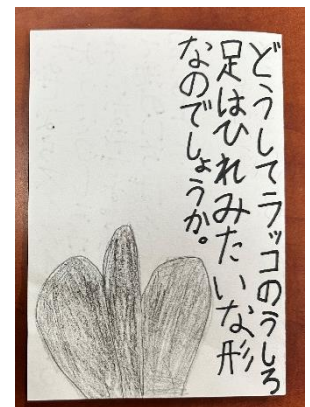 どうしてラッコのうしろ
足はひれみたいな形
なのでしょうか。